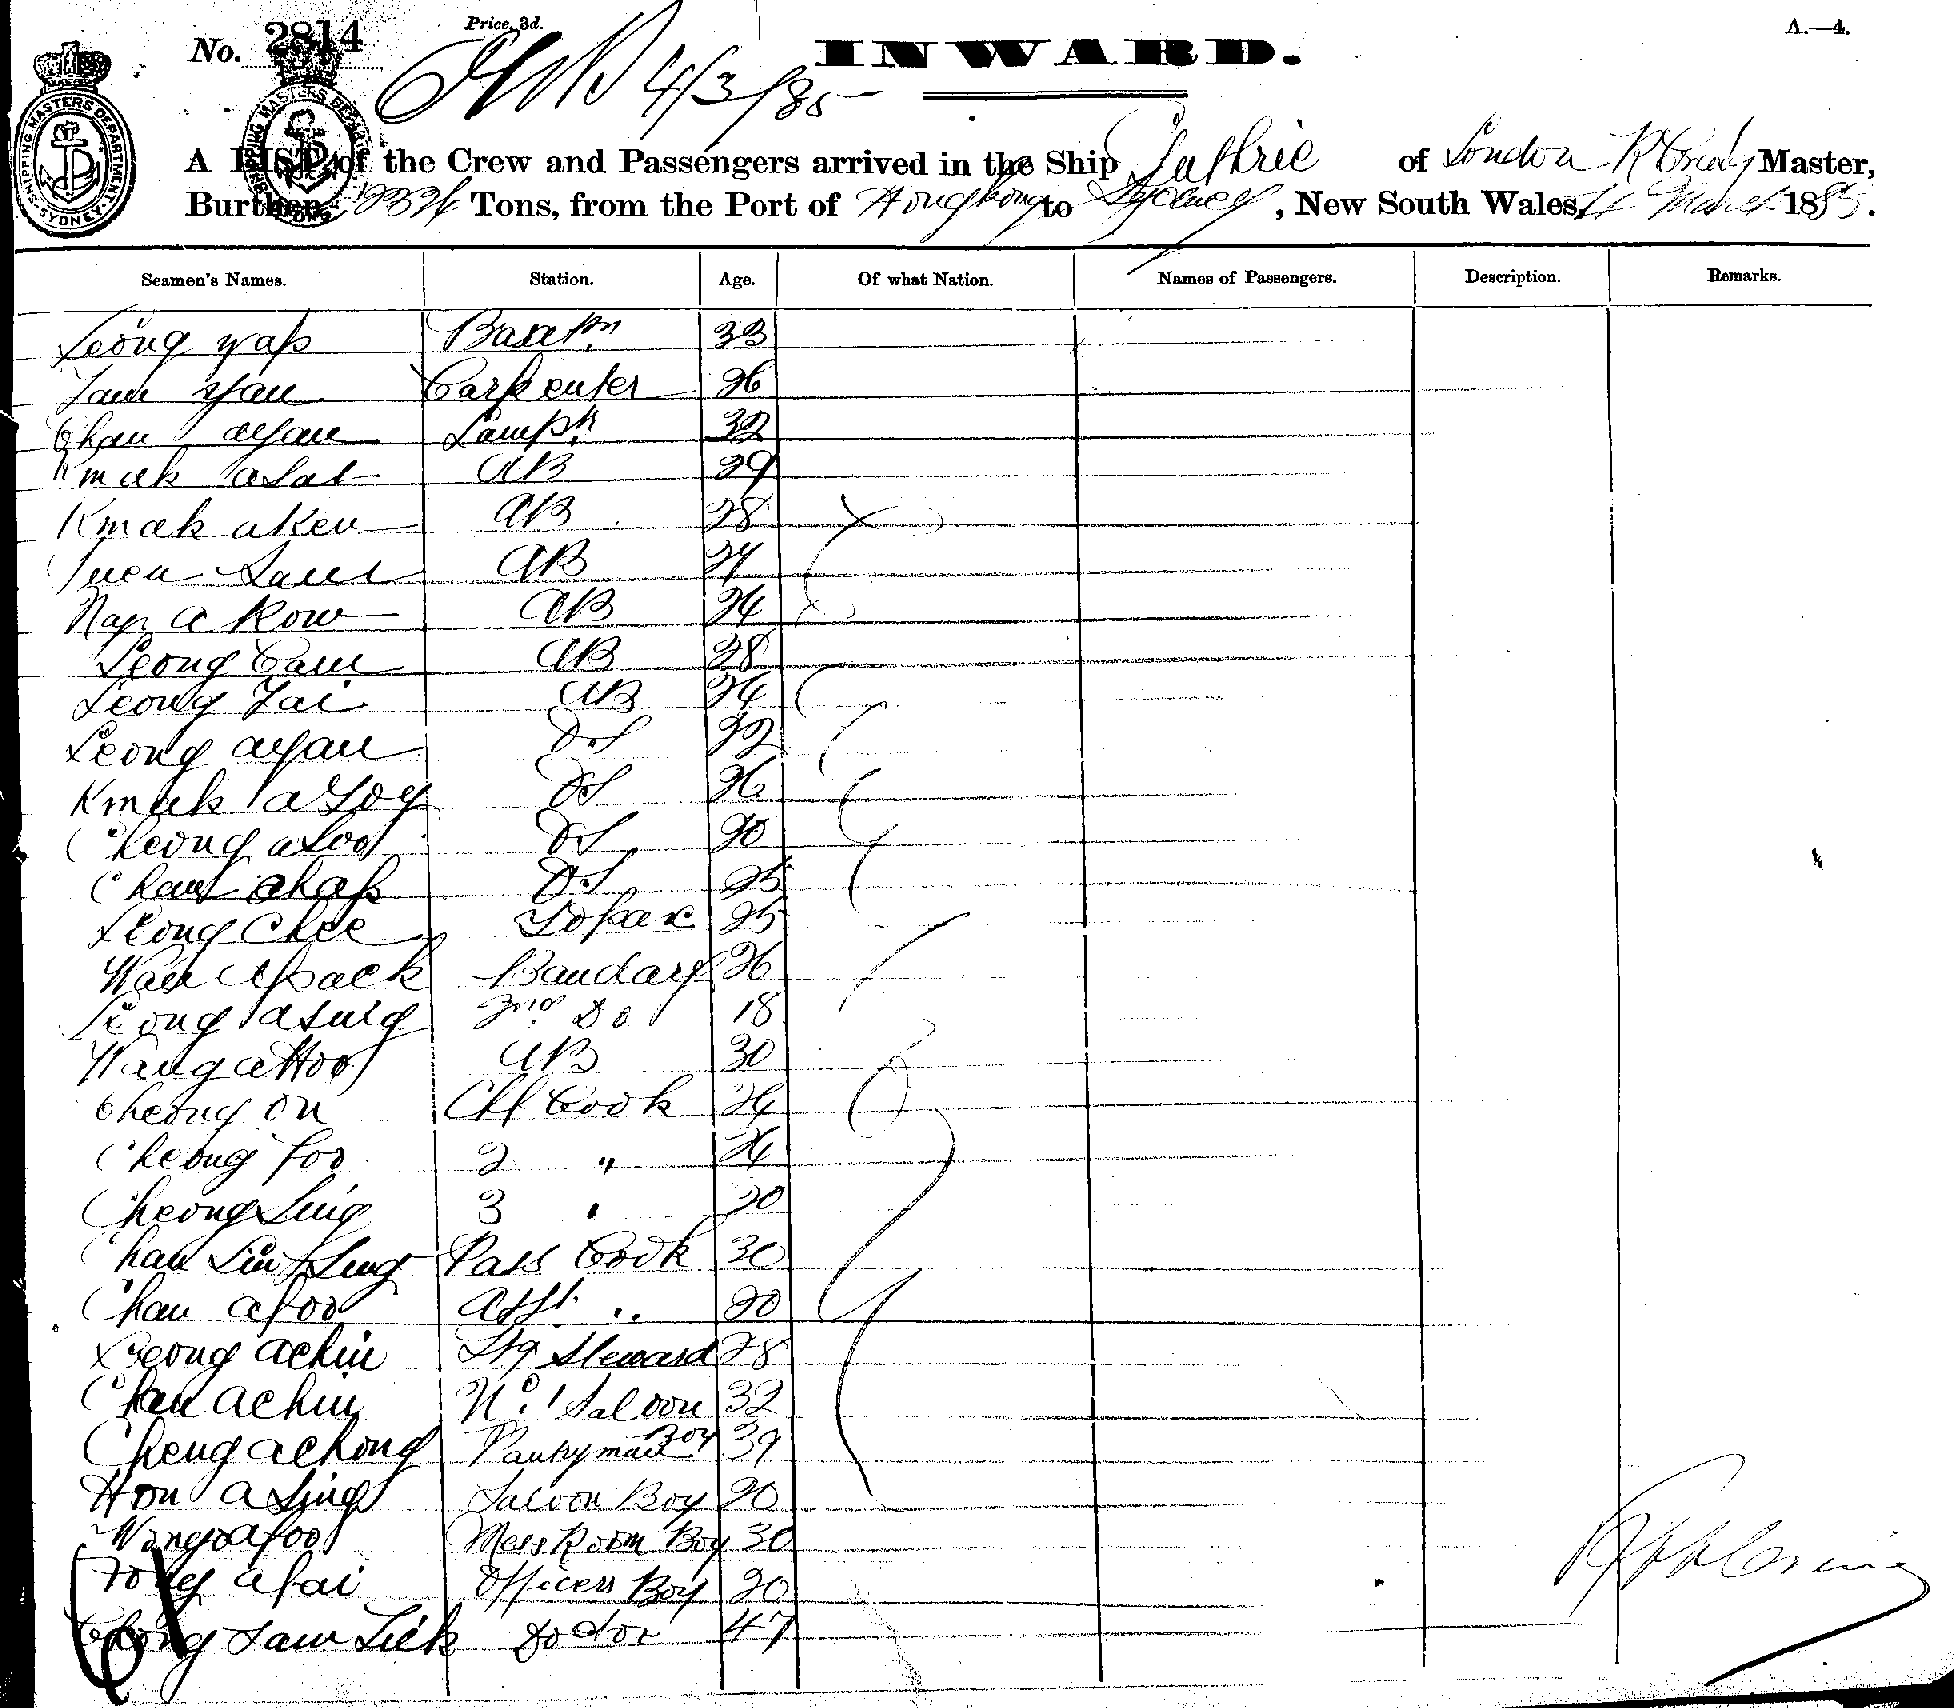 No. 2814
Price, 3d.
A.—4.
INWARD.
4/3/85
SHIPPING MASTERS DEPARTMENT SYDNEY
A LIST of the Crew and Passengers arrived in the Ship Guthrie of London Master,
Burthen Tons, from the Port of Hongkong to Sydney, New South Wales, 4 March 1885.
Seamen's Names. Station. Age. Of what Nation. Names of Passengers. Description. Remarks.
Leong yap 33
Tam Yau Carpenter 26
Chan ayau Lampr 32
Kmak AB 29
Kmak aKeu AB 28
AB 24
Nap a Kow AB 24
Leong Cam AB 28
Leong Tai AB 24
Leong ayau OS 22
Kmak OS 26
Cheong aLoo OS 20
Chan ahap OS 25
Leong Chee Topax 25
Wan apack Bandary 26
Leong asing 2nd Do 18
Wang attoo AB 30
Cheong on Chf Cook 24
Cheong foo 2 " 24
Cheong Sing 3 " 20
Chan Pass Cook 30
Chan afoo Asst " 20
Leong achin Stg Steward 28
Chan achin No. 1 Saloon Boy 32
Cheng achong Pantryman 39
Hon a Sing Saloon Boy 20
Wong afoo Mess Room Boy 30
afai Officers Boy 20
Chong Doctor 47